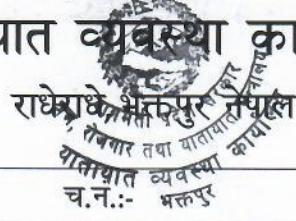 यात व्यवस्था का
राधेराधे, भक्तपुर नेपाल
रोजगार तथा यातायात
यातायात व्यवस्था कार्यालय
भक्तपुर
च.नं.:-